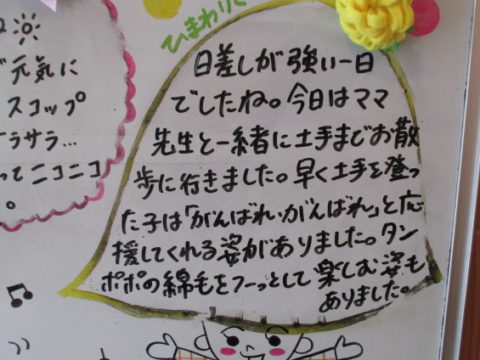 元気に
スコップ
サラ...
ってニコニコ
。
ひまわり
日差しが強い一日
でしたね。今日はママ
先生と一緒に土手までお散
歩に行きました。早く土手を登っ
た子は「がんばれ・がんばれ」と応
援してくれる姿がありました。タン
ポポの綿毛をフーっとして楽しむ姿も
ありました。